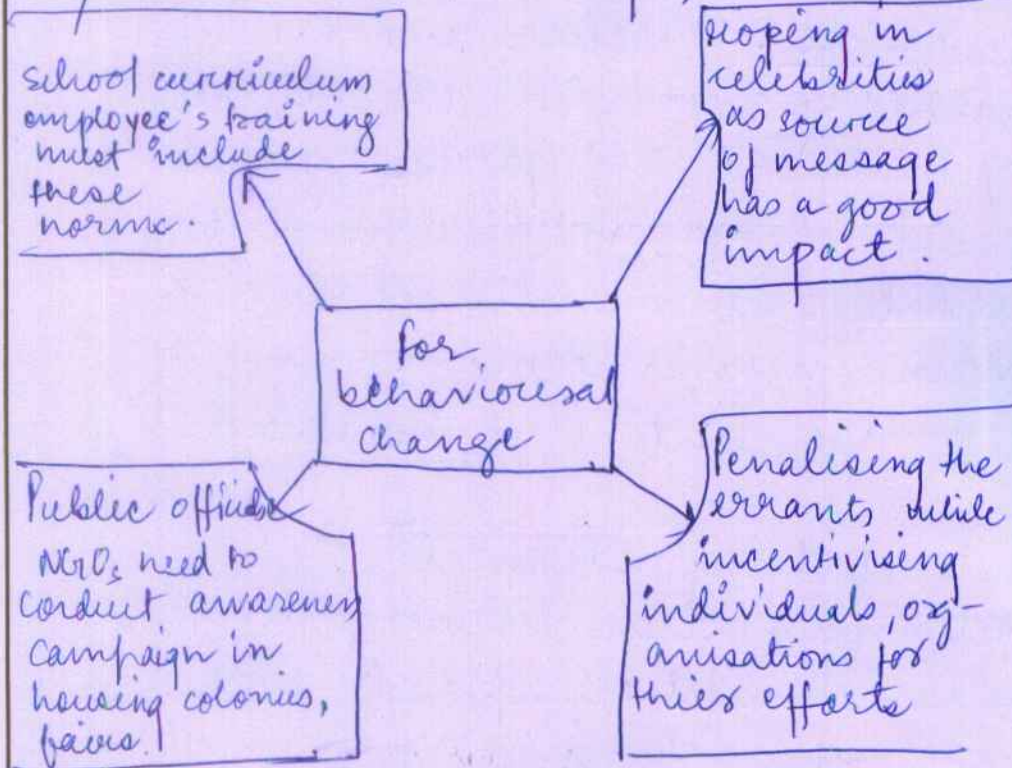 school curriculum
employee's training
must include
these
norms.
roping in
celebrities
as source
of message
has a good
impact.
for
behavioural
change
Public officials
NGOs need to
conduct awareness
campaign in
housing colonies,
fairs.
Penalising the
errants while
incentivising
individuals, org-
anisations for
thier efforts